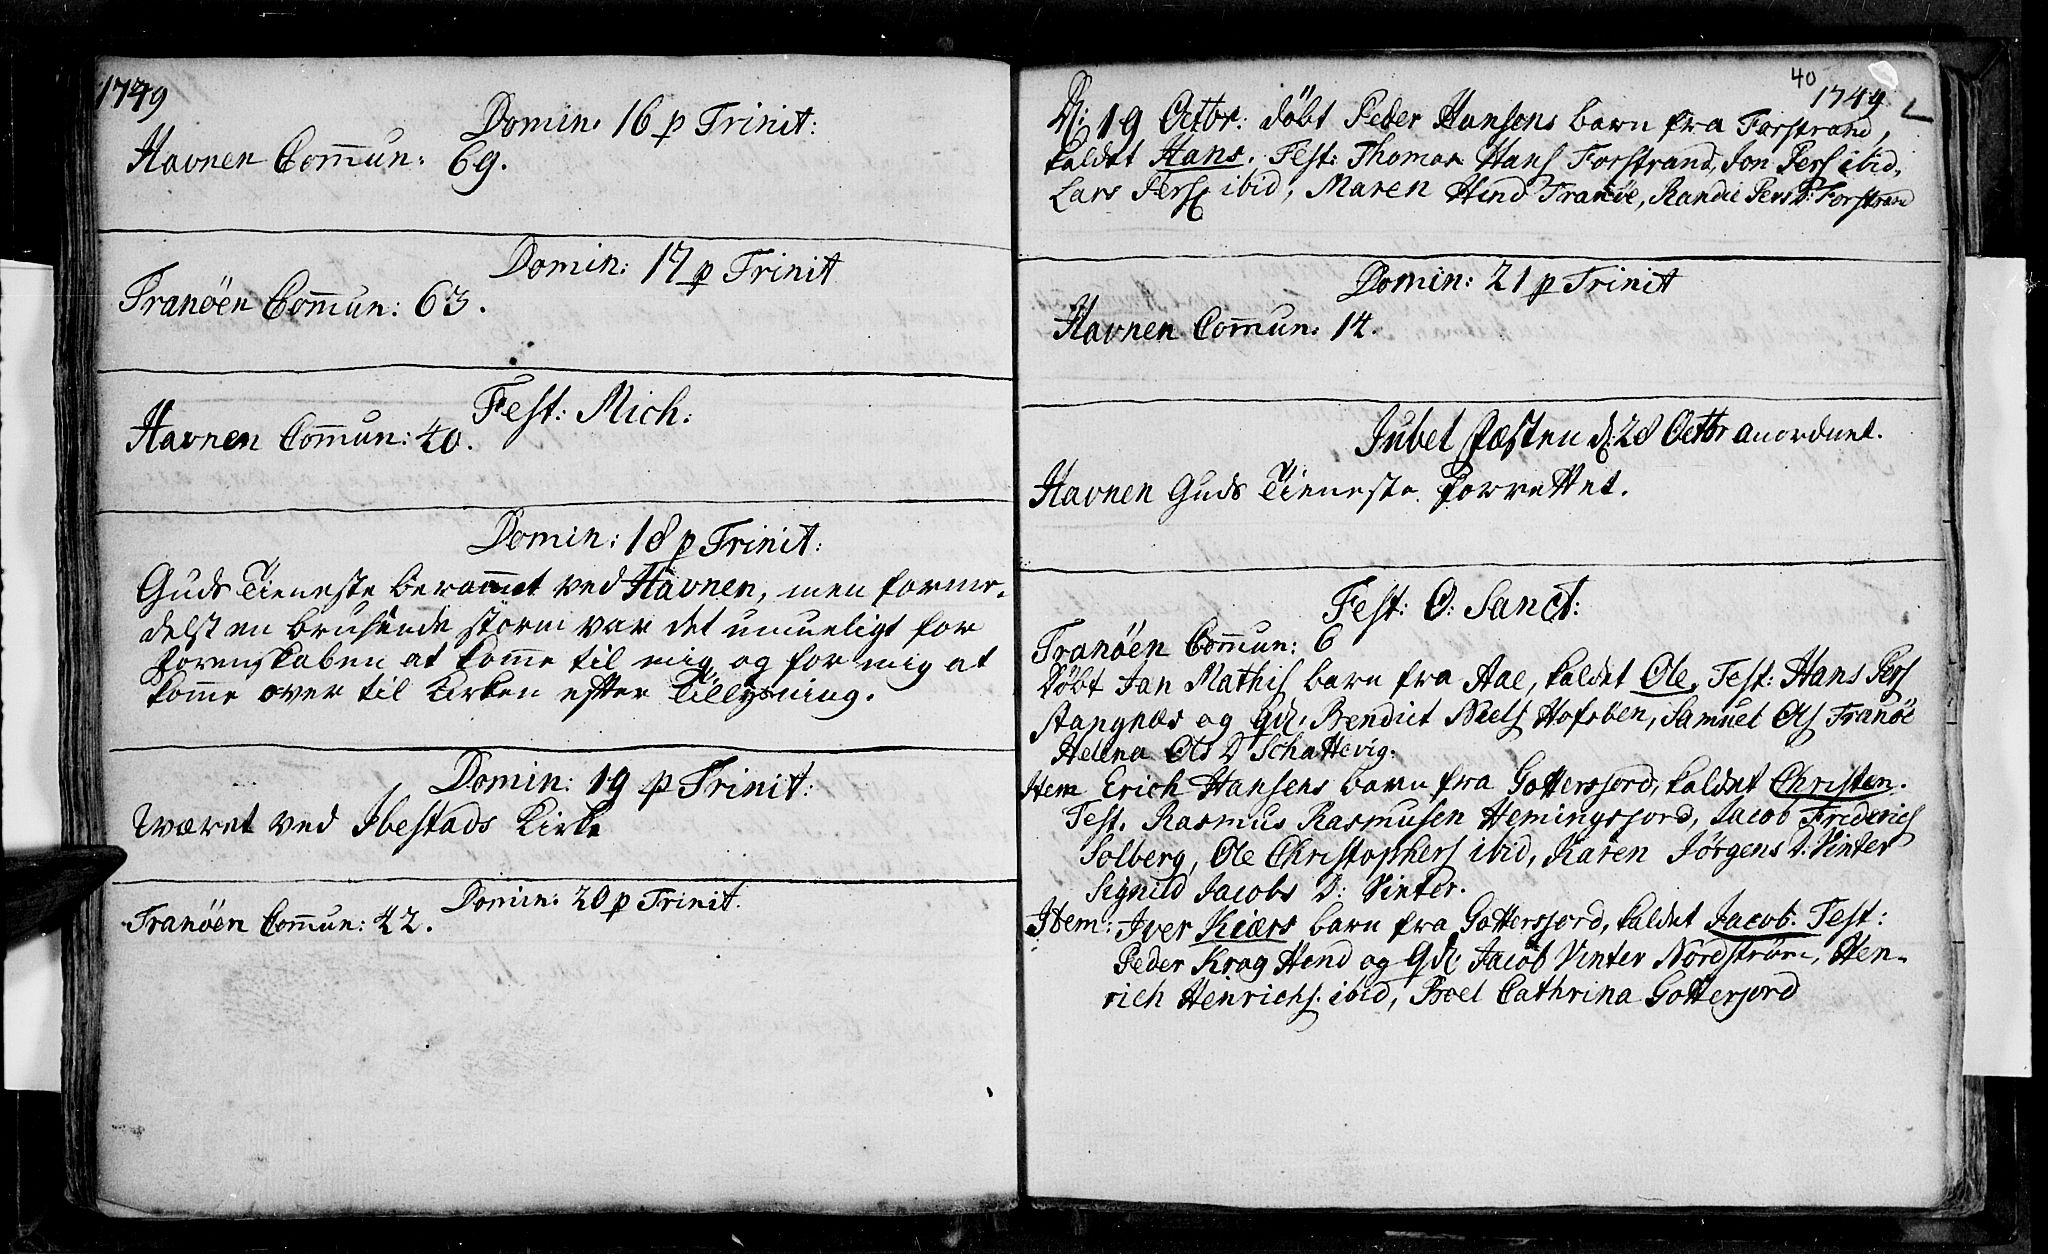 1749
Domin: 16 p Trinit:
Havnen Com̄un: 69.
Domin: 17 p Trinit
Tranöen Com̄un: 63.
Fest: Mich:
Havnen Com̄un: 40.
Domin: 18 p Trinit:
Guds Tieneste berammet ved Havnen, men forme-
delst en brusende störm var det umueligt for
Præsten at komme til mig og for mig at
komme over til Kirken efter Tillysning.
Domin: 19 p Trinit:
Været ved Ibestads Kirke
Domin: 20 p Trinit.
Tranöen Com̄un: 42.
40
1749
D: 19 Octbr: döbt Peder Hansens barn fra Forstrand,
kaldet Hans. Test: Thomas Hans Forstrand, Jon Pers ibid,
Lars Pers ibid, Maren Hend Tranöe, Randie Pers D: Forstrand
Domin: 21 p Trinit
Havnen Com̄un: 14.
Jubel Festen d: 28 Octbr anordnet.
Havnen Guds Tieneste forrettet.
Fest: O: Sanct:
Tranöen Com̄un: 6
Döbt Jan Mathis barn fra Aae, kaldet Ole. Test: Hans Pers
Stangnæs og Qde: Bendict Niels Hofsöen, Samuel Ols Tranöe
Helena Ols D Schattevig.
Item Erich Hansens barn fra Gottersjord, kaldet Christen.
Test. Rasmus Rasmusen Hemingsjord, Jacob Friderichs
Solberg, Ole Christophers ibid, Karen Jörgens D: Vinter
Signild Jacobs D: Vinter.
Item: Iver Kiærs barn fra Gottersjord, kaldet Jacob. Test:
Peder Krog Hend og Qde Jacob Vinter Nordström, Hen-
rich Henrichs. ibid, Boel Cathrina Gotterjord